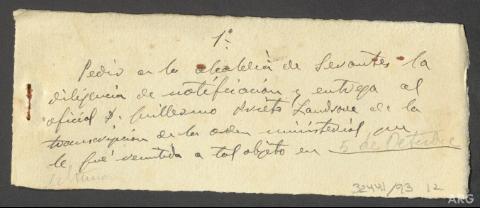 1º
Pedir a la alcaldía de Sevantes la
diligencia de notificación y entrega al
oficial D. Guillermo Arieta Landrove de la
transcripción de la orden ministerial que
le fué remitida a tal objeto en 5 de Octubre
32441/93 12
ARG